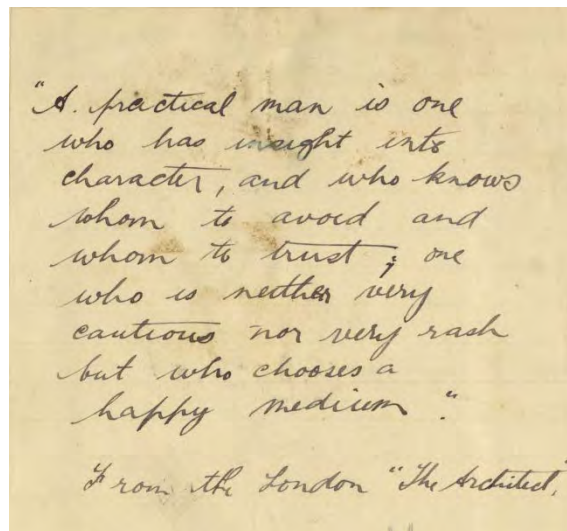 "A. practical man is one
who has insight into
character, and who knows
whom to avoid and
whom to trust ; one
who is neither very
cautious nor very rash
but who chooses a
happy medium."
From the London "The Architect,